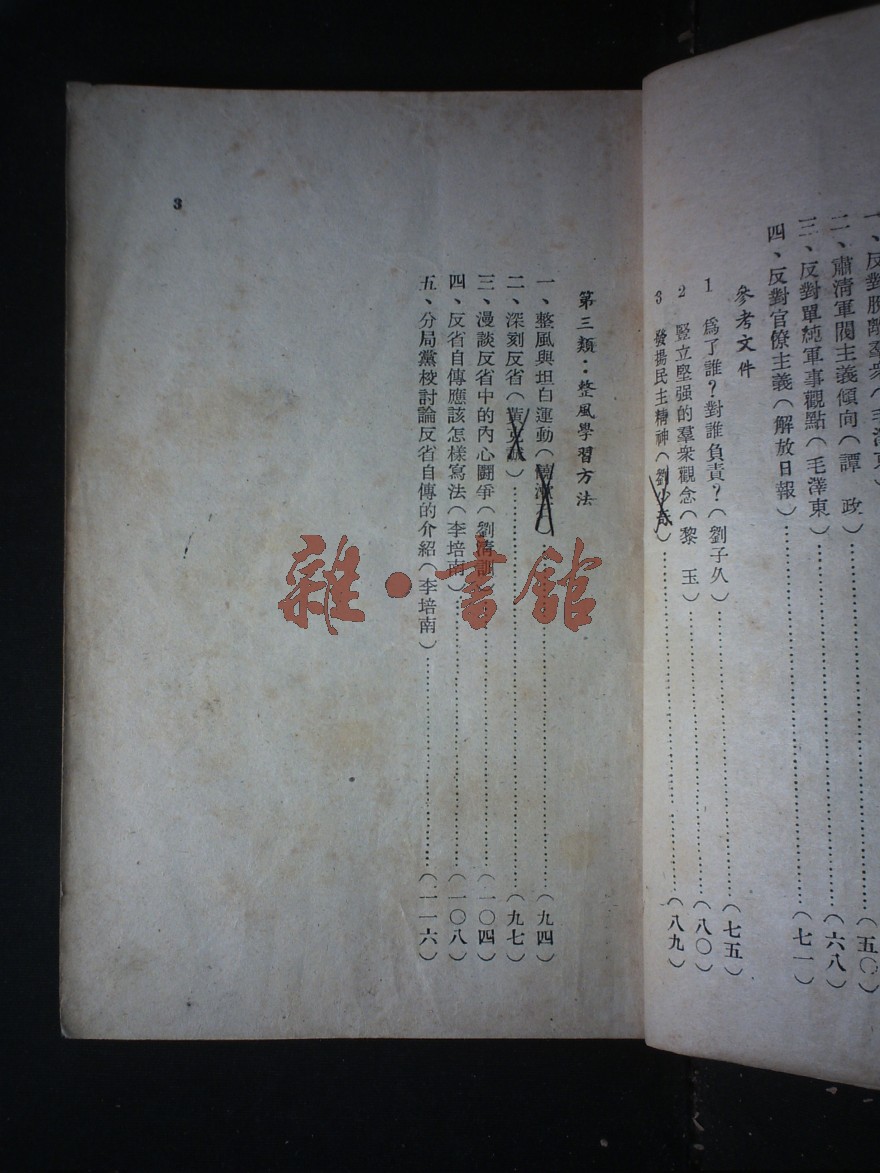 一、反對脫離羣衆（毛澤東）……（五〇）
二、肅清軍閥主義傾向（譚　政）……（六八）
三、反對單純軍事觀點（毛澤東）……（七一）
四、反對官僚主義（解放日報）
參考文件
1　爲了誰？對誰負責？（劉子久）……（七五）
2　竪立堅强的羣衆觀念（黎　玉）……（八〇）
3　發揚民主精神（劉少奇）……（八九）
第三類：整風學習方法
一、整風與坦白運動……（九四）
二、深刻反省（黃克誠）……（九七）
三、漫談反省中的內心鬪爭（劉清訓）……（一〇四）
四、反省自傳應該怎樣寫法（李培南）……（一〇八）
五、分局黨校討論反省自傳的介紹（李培南）……（一一六）
3
雜·書館